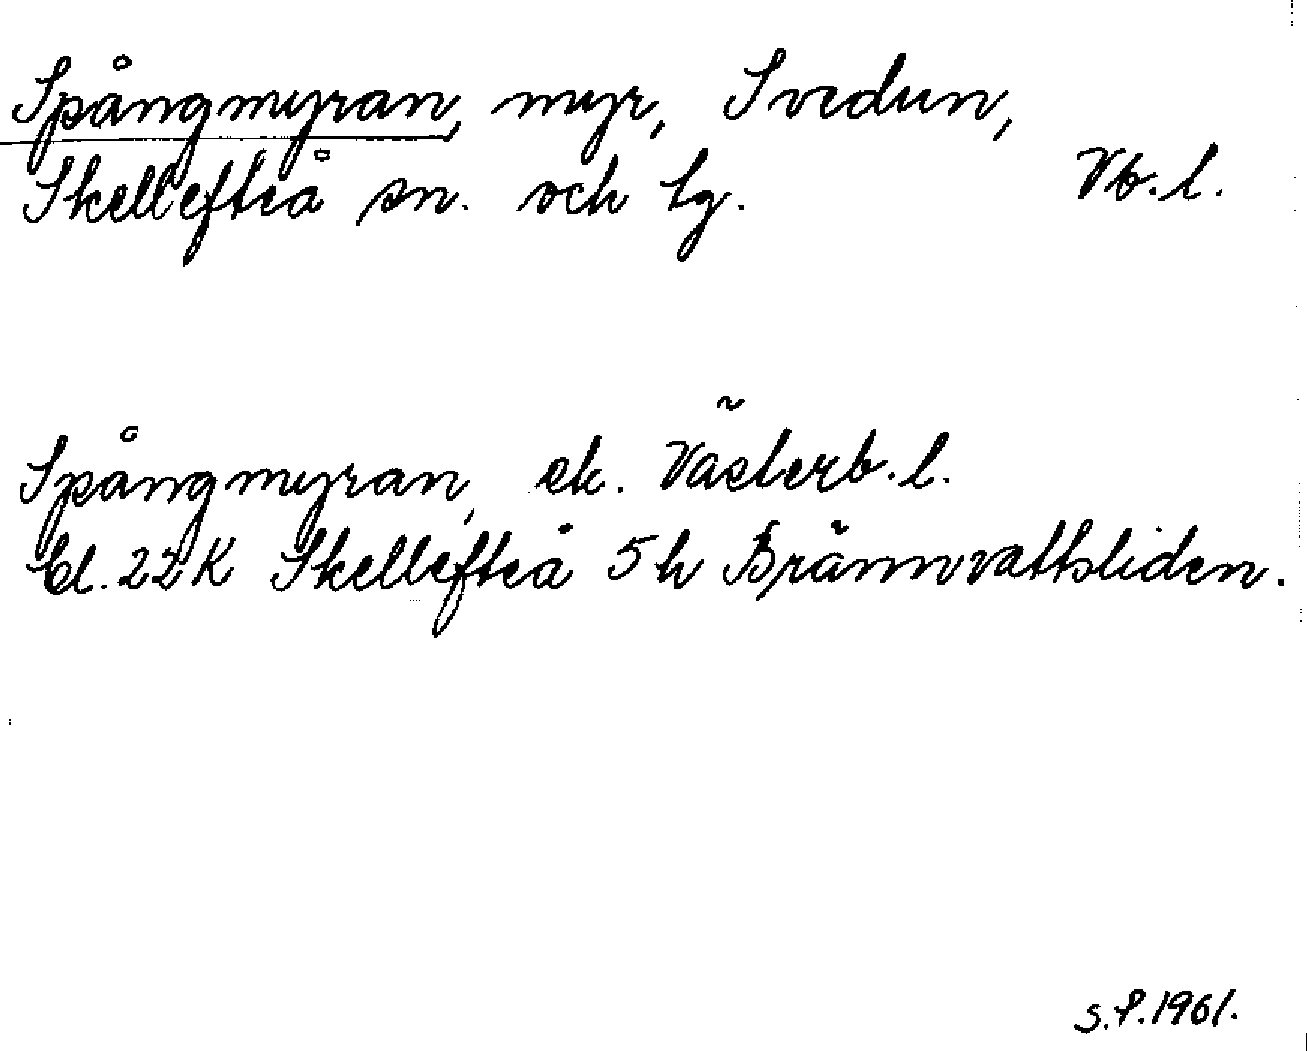 Spångmyran, myr, Svedun,
Skellefteå sn. och tg. Vb.l.
Spångmyran, ek. Västerb.l.
bl. 22K Skellefteå 5h Brännvattsliden.
S.P.1961.